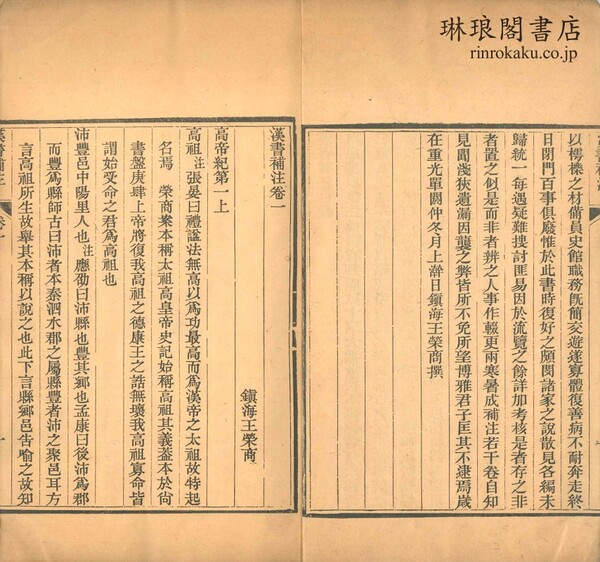 琳琅閣書店
rinrokaku.co.jp
以樗櫟之材備員史館職務既簡交遊遂寡體復善病不耐奔走終
日閉門百事俱廢惟於此書時復好之頗閔諸家之說散見各編未
歸統一每遇疑難搜討匪易因於流覽之餘詳加考核是者存之非
者置之似是而非者辨之人事作輟更兩寒暑成補注若干卷自知
見聞淺狹遺漏因襲之弊皆所不免所望博雅君子匡其不逮焉歲
在重光單閼仲冬月上澣日鎮海王榮商撰
漢書補注卷一
鎮海王榮商
高帝紀第一上
高祖注張晏曰禮諡法無高以爲功最高而爲漢帝之太祖故特起
名焉 榮商案本稱太祖高皇帝史記始稱高祖其義蓋本於尙
書盤庚肆上帝將復我高祖之德康王之誥無壞我高祖寡命皆
謂始受命之君爲高祖也
沛豐邑中陽里人也注應劭曰沛縣也豐其鄉也孟康曰後沛爲郡
而豐爲縣師古曰沛者本秦泗水郡之屬縣豐者沛之聚邑耳方
言高祖所生故舉其本稱以說之也此下言縣鄉邑告喻之故知
漢書補注 卷一 一